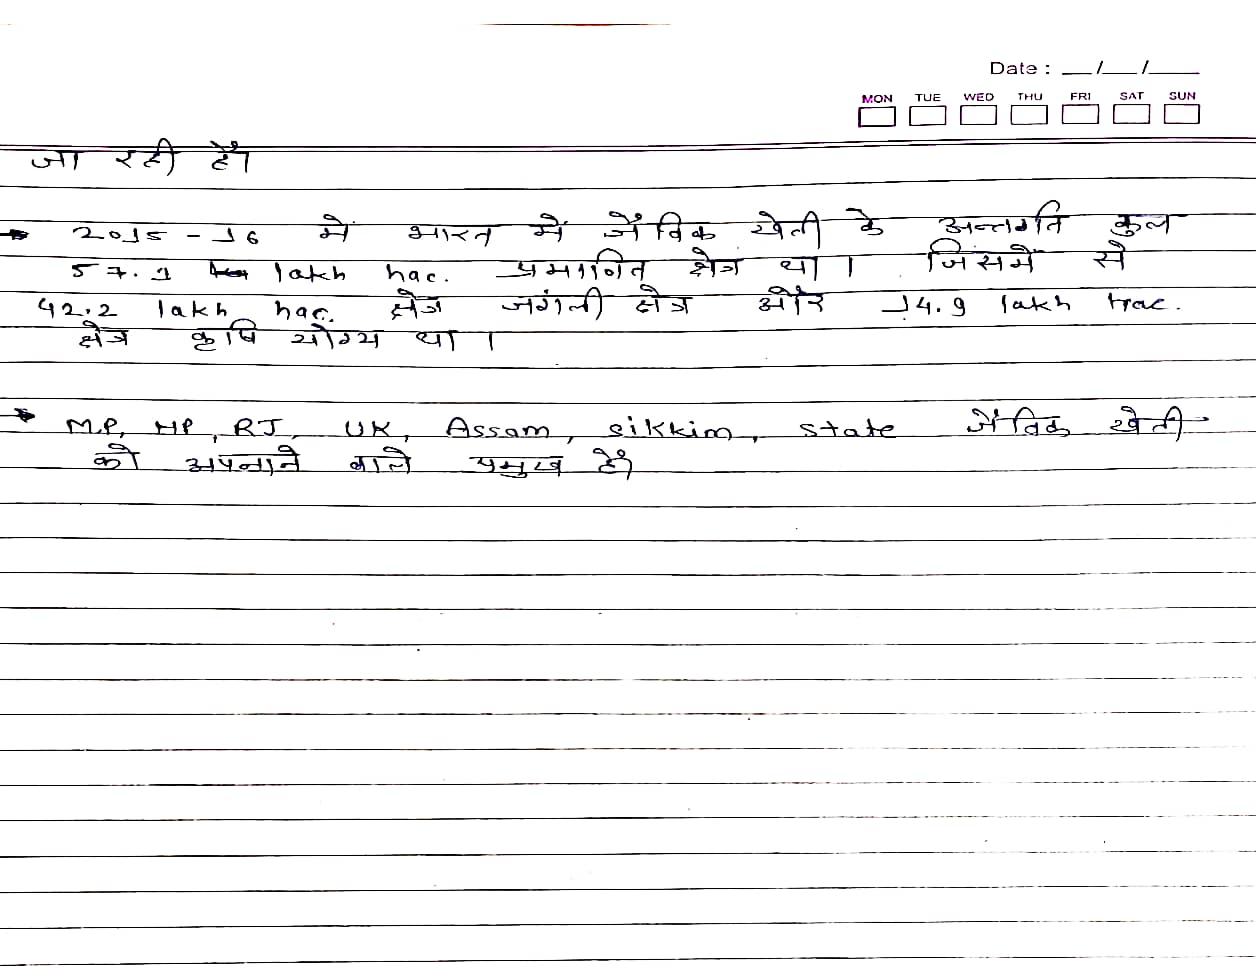 Date : __/__/__
MON TUE WED THU FRI SAT SUN
जा रही है।
→ 2015 - 16 में भारत में जैविक खेती के अन्तर्गत कुल
57.1 lakh hac. प्रमाणित क्षेत्र था। जिसमें से
42.2 lakh hac. क्षेत्र जगंली क्षेत्र और 14.9 lakh hac.
क्षेत्र कृषि योग्य था।
→ M.P, HP, RJ, UK, Assam, sikkim, state जैविक खेती
को अपनाने वाले प्रमुख है।